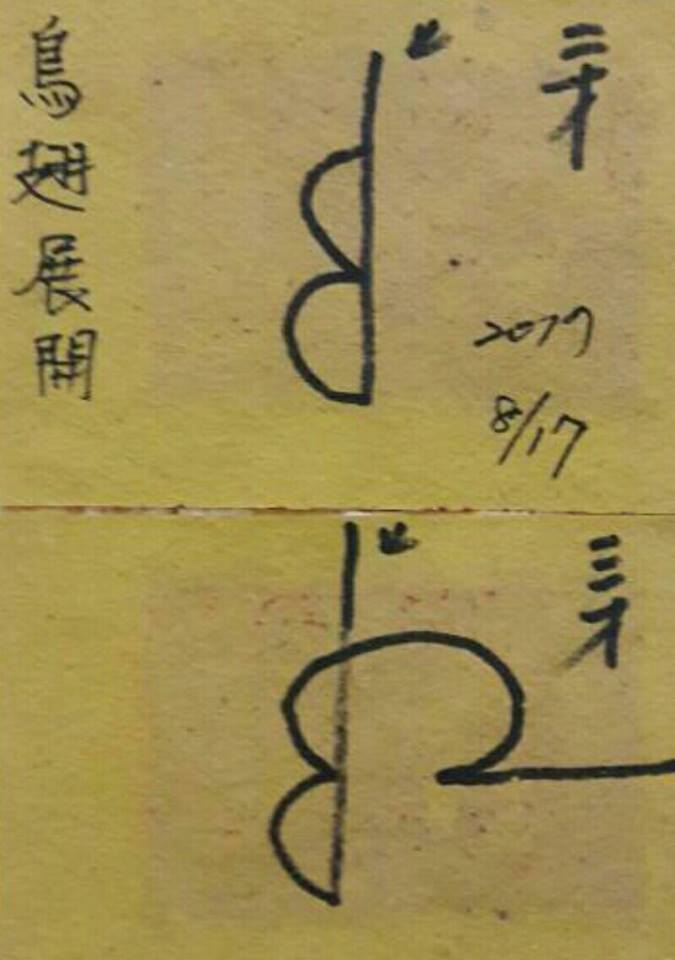 二才
2019
8/17
鳥翅展開
三才